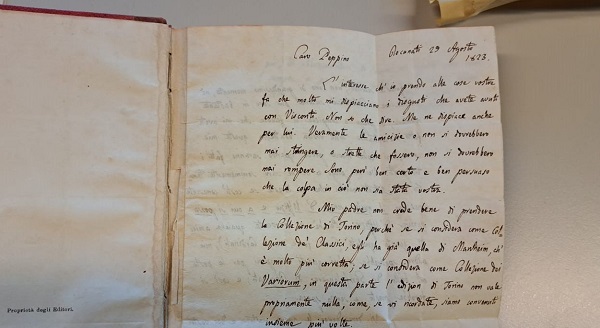 Caro Peppino
Recanati 29 Agosto
1823.
L'interesse ch'io prendo alle cose vostre
fa che molto mi dispiacciano i disgusti che avete avuti
con Visconti. Non so che dire. Me ne dispiace anche
per lui. Veramente le amicizie o non si dovrebbero
mai stringere, o strette che fossero, non si dovrebbero
mai rompere. Sono però ben certo e ben persuaso
che la colpa in ciò non sia stata vostra.
Mio padre non crede bene di prendere
la Collezione di Torino, perchè se si considera come Col-
lezione de' Classici, egli ha già quella di Manheim, ch'
è molto più corretta; se si considera come Collezione dei
Variorum, in questa parte l'edizion di Torino non vale
propriamente nulla, come, se vi ricordate, siamo convenuti
insieme più volte.
Proprietà degli Editori.